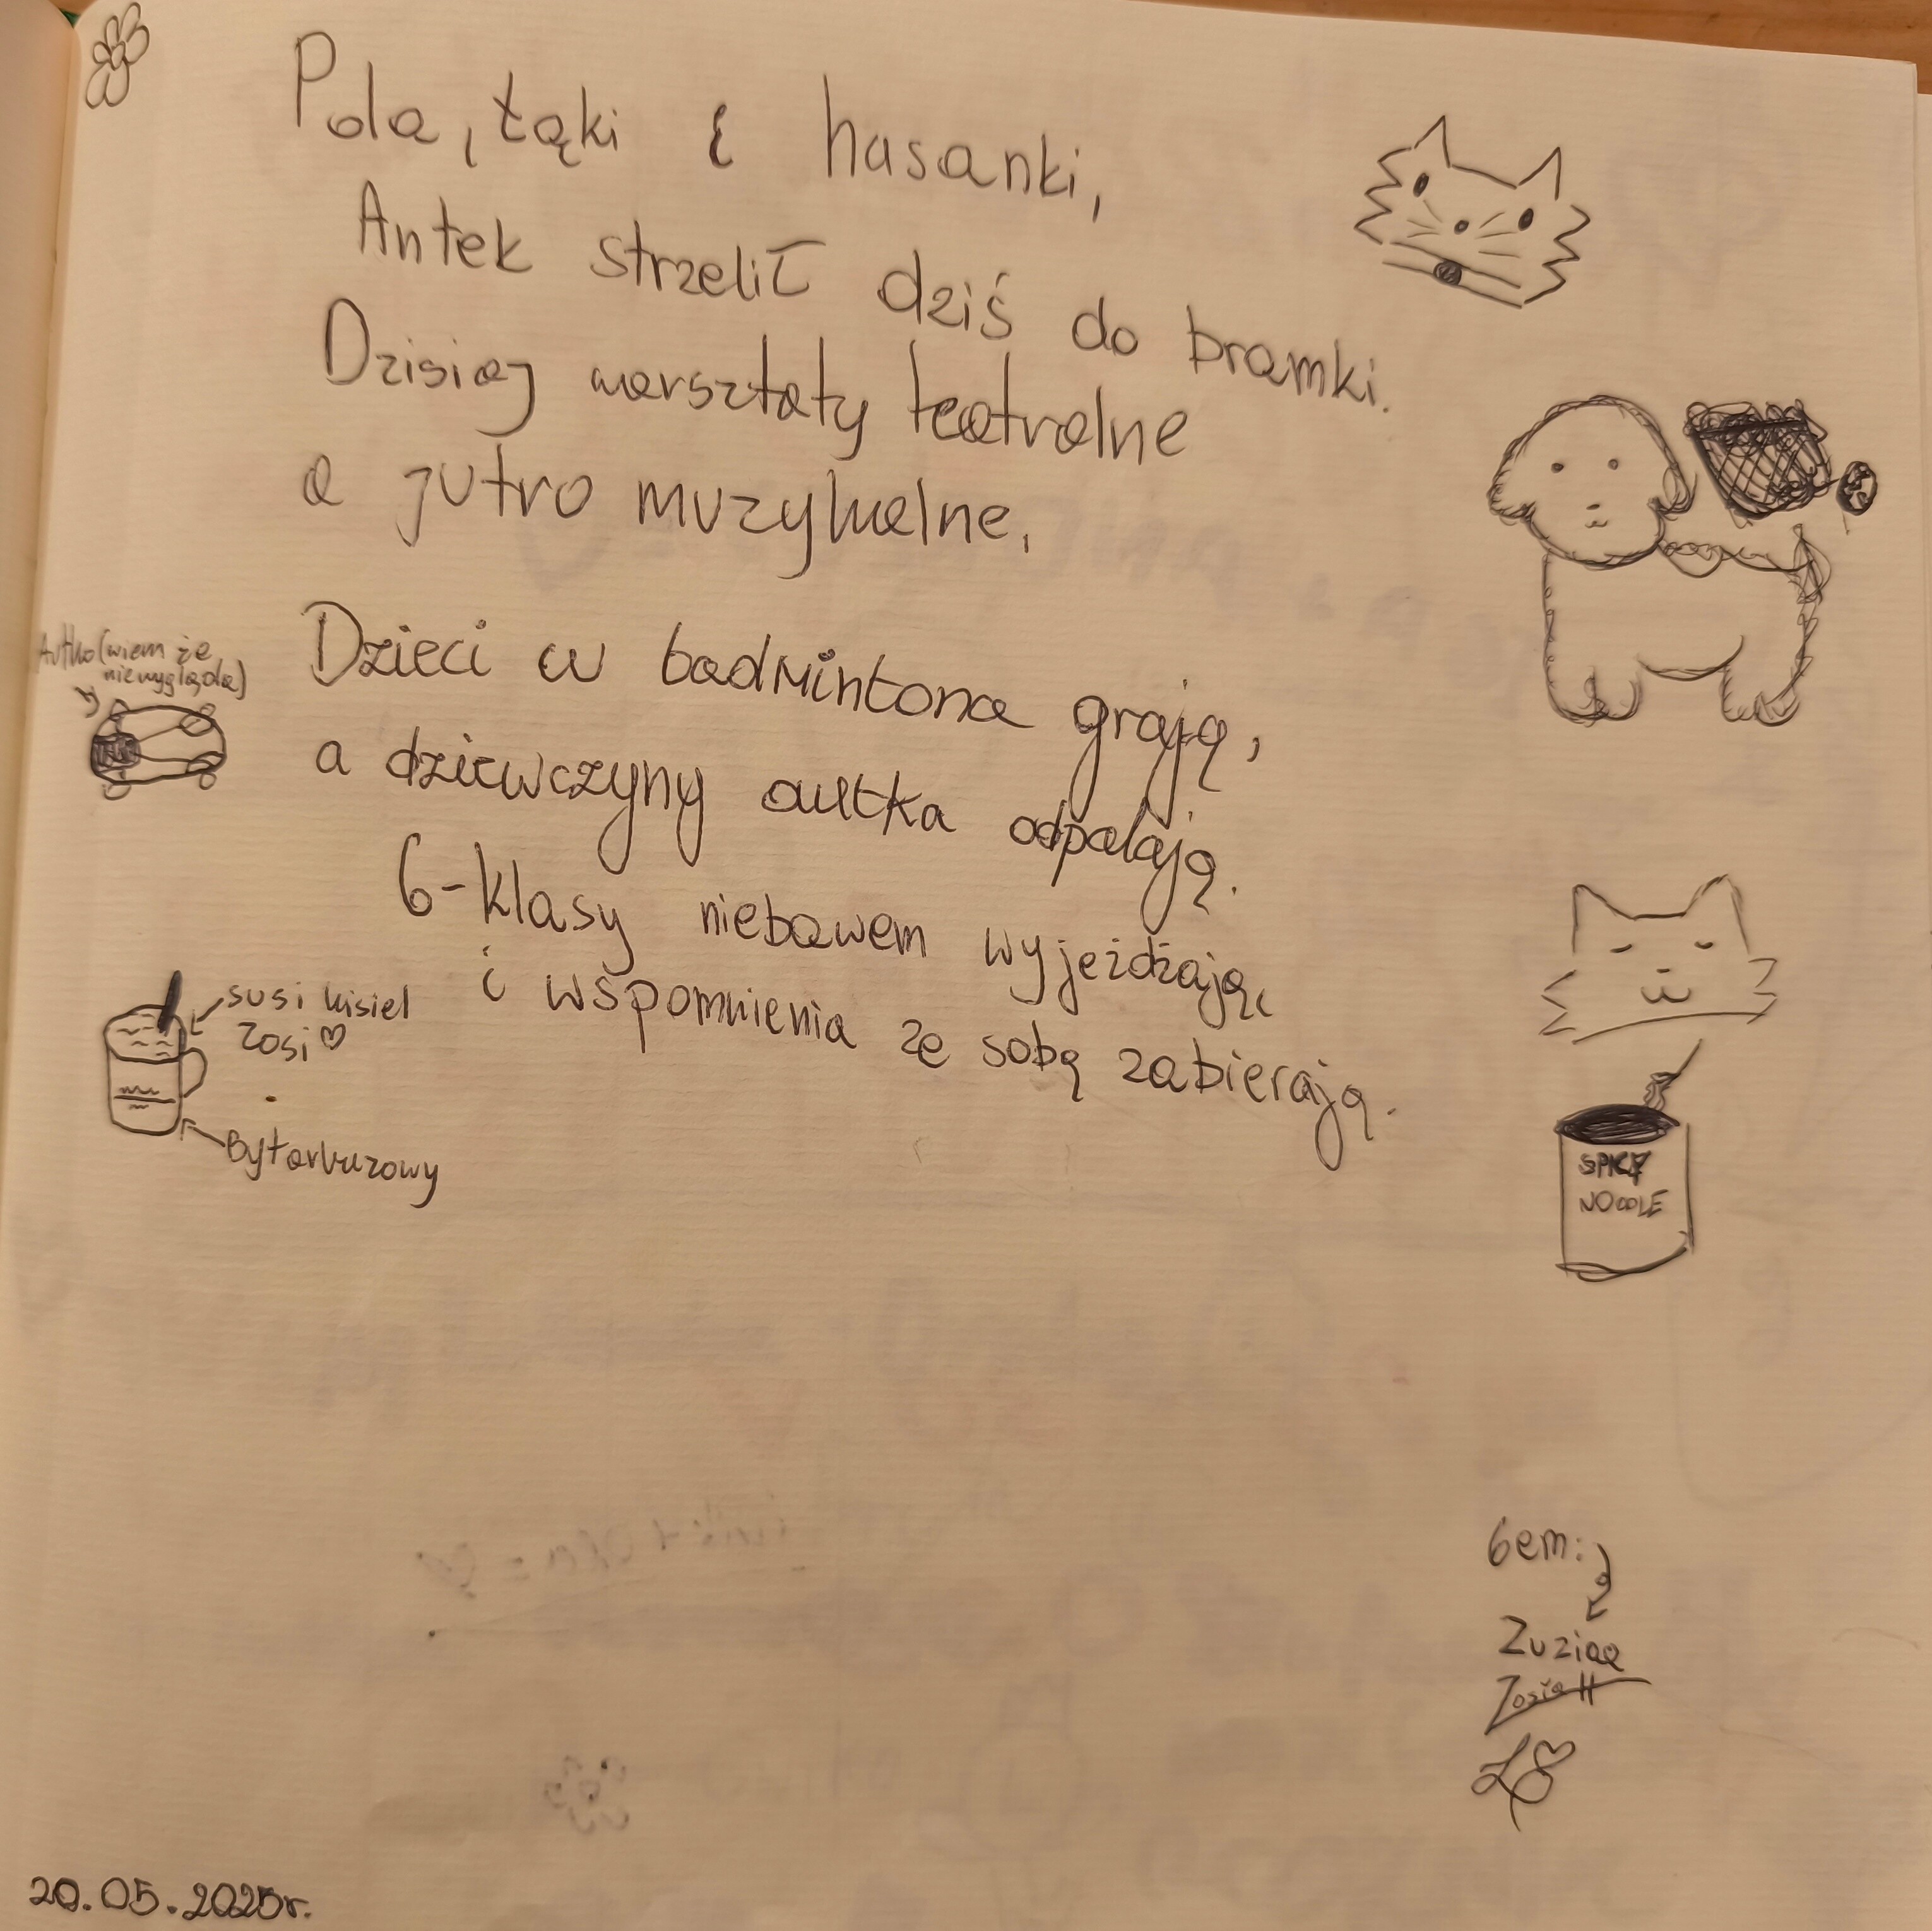 Pola, łąki i hasanki,
Antek strzelił dziś do bramki.
Dzisiaj warsztaty teatralne
a jutro muzykalne.
Dzieci w badmintona grają,
a dziewczyny autka odpalają.
6-klasy niebawem wyjeżdżają,
i wspomnienia ze sobą zabierają.
Autko (wiem że
niewygląda)
susi kisiel
Zosi ♡
Był arbuzowy
SPICY
NOODLE
6em:
Zuziaa
Zosia H
20.05.2025r.